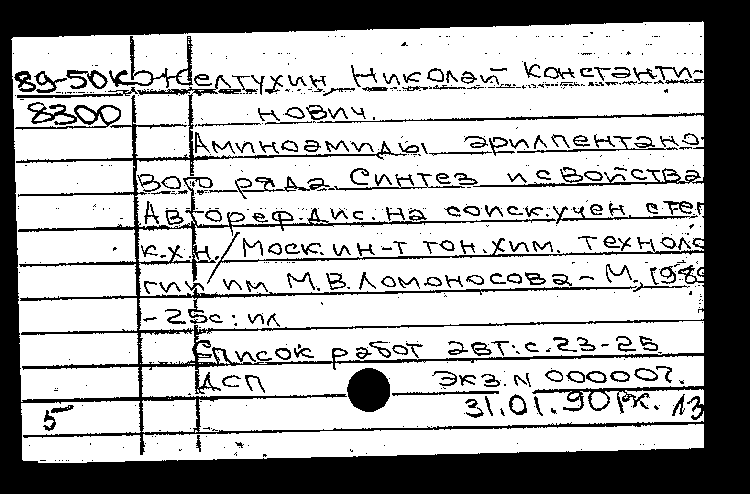 89-50к Желтухин, Николай Константи-
8300 нович.
Аминоамиды арилпентано-
вого ряда. Синтез и свойства
Автореф. дис. на соиск. учен. степ
к.х.н. / Моск. ин-т тон. хим. техноло
гии им. М.В. Ломоносова - М., 1989
- 25с: ил
Список работ авт: с. 23-25
ДСП Экз. N 000007.
5 31.01.90 рк. 13